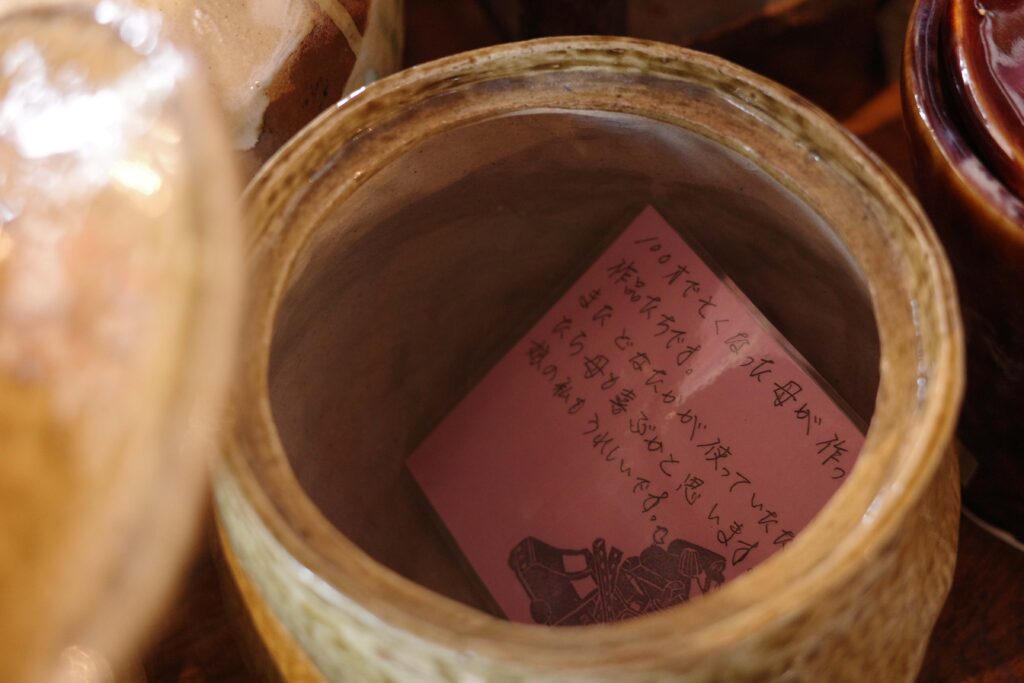 100才で亡くなった母が作っ
作品たちです。
またどなたかが使っていただ
たら母も喜ぶかと思います。
娘の私もうれしいです。